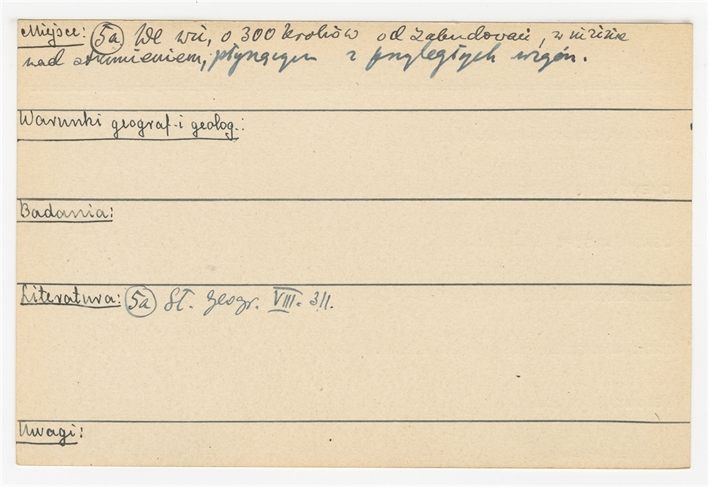 Miejsce: (5a) We wsi, o 300 kroków od zabudowań, w nizinie
nad strumieniem, płynącym z przyległych wzgórz.
Warunki geograf. i geolog.:
Badania:
Literatura: (5a) Sł. Geogr. VIII. 311.
Uwagi: